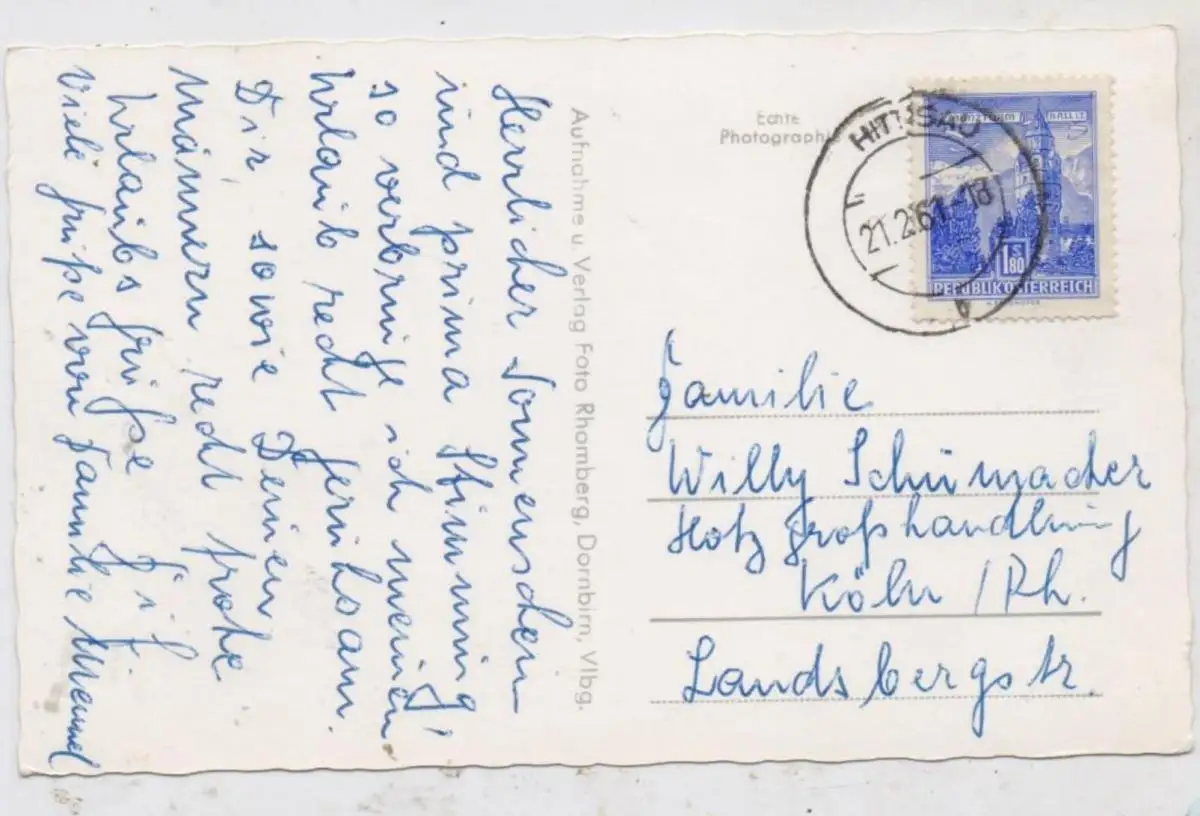 Herrlicher Sonnenschein
und prima Stimmung!
so verbringe ich meinen
Urlaub recht geruhsam.
Dir, sowie Deinen
Männern recht frohe
Urlaubsgrüße
viele Grüße von Familie
Aufnahme u. Verlag Foto Rhomberg, Dornbirn, Vlbg.
Echte
Photographie
HITTISAU
21.2.61-18
HALL I.T.
S
1.80
REPUBLIK ÖSTERREICH
Familie
Willy Schümacher
Holzgroßhandlung
Köln / Rh.
Landsbergstr.